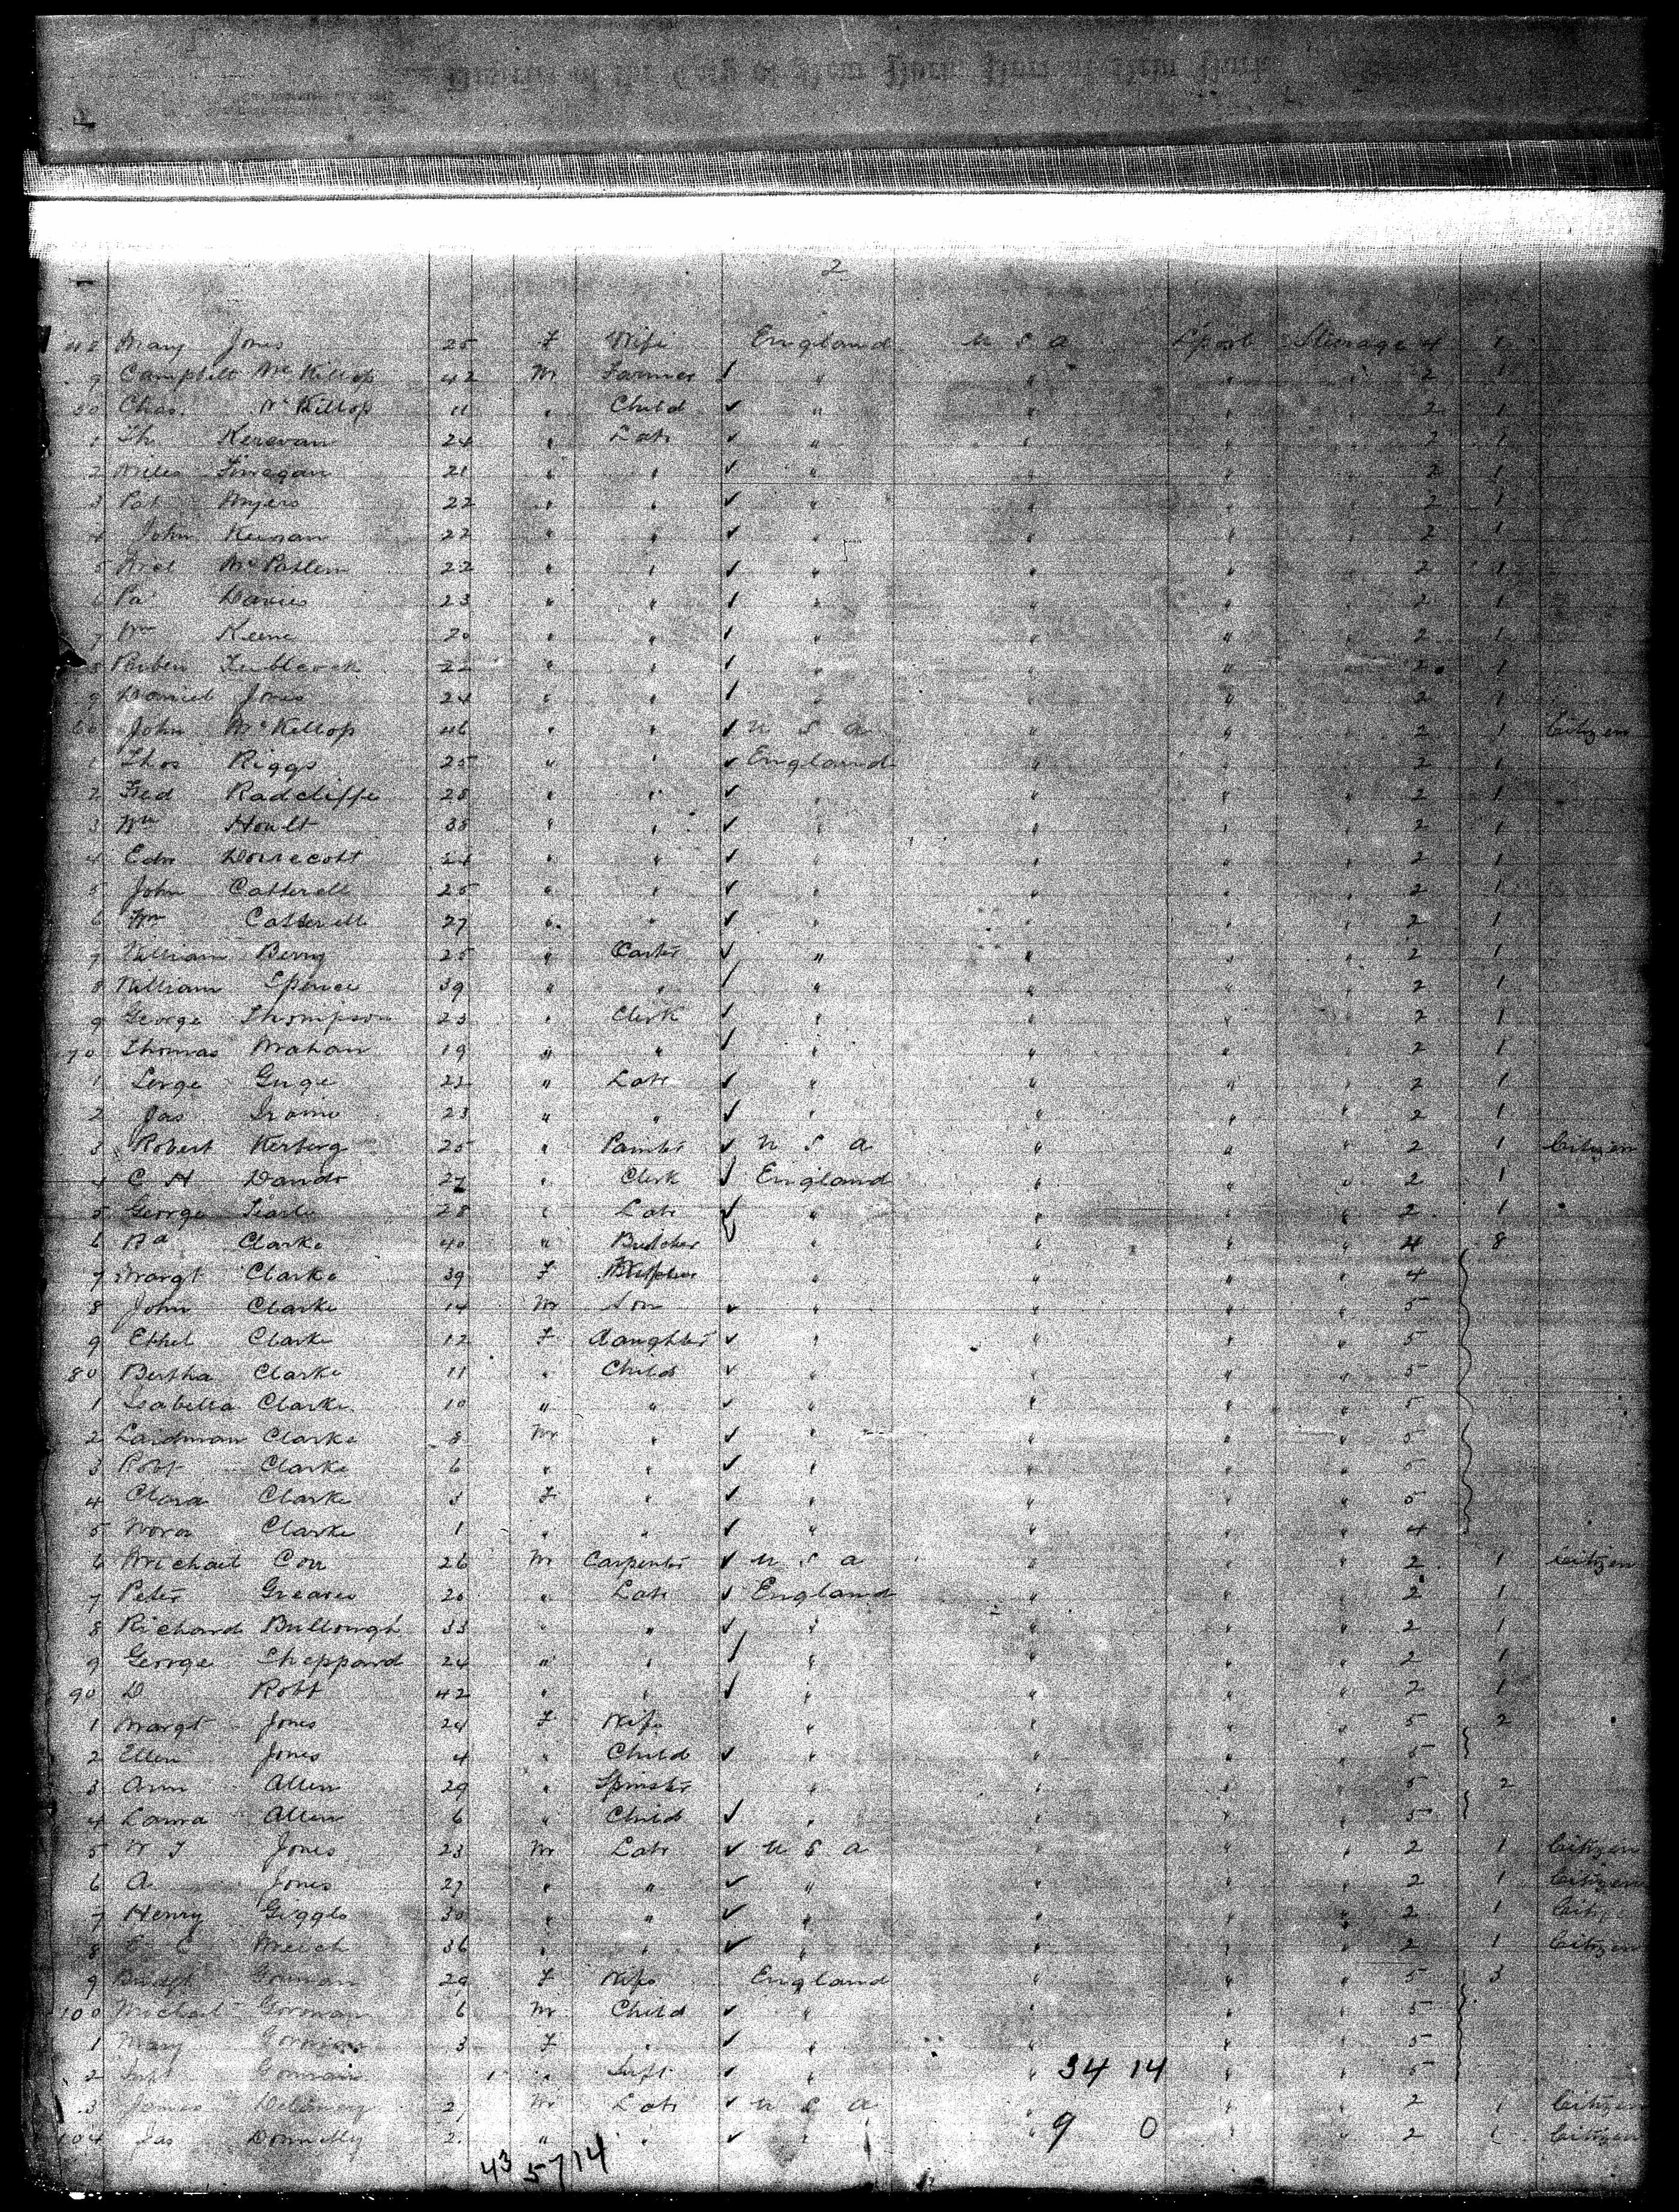 2
48 Mary Jones 25 F Wife England U S A L'pool Steerage 4 1
9 Campbell McKillop 42 M Farmer " " " " 2 1
50 Chas. McKillop 11 " Child " " " " 2 1
1 Th Kerevan 24 " Labr " " " " 2 1
2 Miles Finegan 21 " " " " " " 2 1
3 Pat Myers 22 " " " " " " 2 1
4 John Keegan 22 " " " " " " 2 1
5 22 " " " " " " 2 1
6 Davies 23 " " " " " " 2 1
7 Wm Keene 20 " " " " " " 2 1
8 Reuben 22 " " " " " " 2 1
9 Daniel Jones 24 " " " " " " 2 1
60 John McKillop 46 " " U S A " " " 2 1 Citizen
1 Thos Riggs 25 " " England " " " 2 1
2 Fred Radcliffe 28 " " " " " " 2 1
3 Wm Hoult 38 " " " " " " 2 1
4 Edw Dorrecott 24 " " " " " " 2 1
5 John Catterell 25 " " " " " " 2 1
6 Wm Catterell 27 " " " " " " 2 1
7 William Berry 25 " Carter " " " " 2 1
8 William Spence 39 " " " " " " 2 1
9 George Thompson 23 " Clerk " " " " 2 1
70 Thomas Mahon 19 " " " " " " 2 1
1 22 " Labr " " " " 2 1
2 Jas 23 " " " " " " 2 1
3 Robert Kerberg 25 " Painter U S A " " " 2 1 Citizen
4 C H 27 " Clerk England " " " 2 1
5 George Searle 28 " Labr " " " " 2 1
6 Clarke 40 " Butcher " " " " 4 8
7 Margt Clarke 39 F " " " " 4
8 John Clarke 14 M Son " " " " 5
9 Ethel Clarke 12 F daughter " " " " 5
80 Bertha Clarke 11 " Child " " " " 5
1 Isabella Clarke 10 " " " " " " 5
2 Laidman Clarke 8 M " " " " " 5
3 Robt Clarke 6 " " " " " " 5
4 Clara Clarke 3 F " " " " " 5
5 Nora Clarke 1 " " " " " " 4
6 Michael Corr 26 M Carpenter U S A " " " 2 1 Citizen
7 Peter Greaves 20 " Labr England " " " 2 1
8 Richard Bullough 33 " " " " " " 2 1
9 George Sheppard 24 " " " " " " 2 1
90 D Robt 42 " " " " " " 2 1
1 Margt Jones 24 F Wife " " " " 5 2
2 Ellen Jones 4 " Child " " " " 5
3 Ann Allen 29 " Spinster " " " " 5 2
4 Laura Allen 6 " Child " " " " 5
5 W J Jones 23 M Labr U S A " " " 2 1 Citizen
6 A Jones 27 " " " " " " 2 1 Citizen
7 Henry Giggle 30 " " " " " " 2 1 Citizen
8 E C 36 " " " " " " 2 1 Citizen
9 Bridgt Gorman 29 F Wife England " " " 5 3
100 Michael Gorman 6 M Child " " " " 5
1 Mary Gorman 3 F " " " " " 5
2 Inft Gorman 1 " Inft " " " " 5
34 14
3 James Delaney 2 M Labr U S A " " " 2 1 Citizen
9 0
104 Jas Donnelly 2 " " " " " " 2 1 Citizen
43 57 14